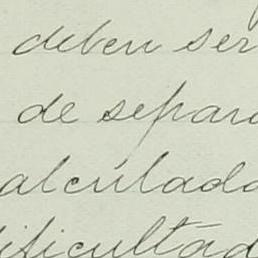 deben ser
de separa
alculada
dificultad